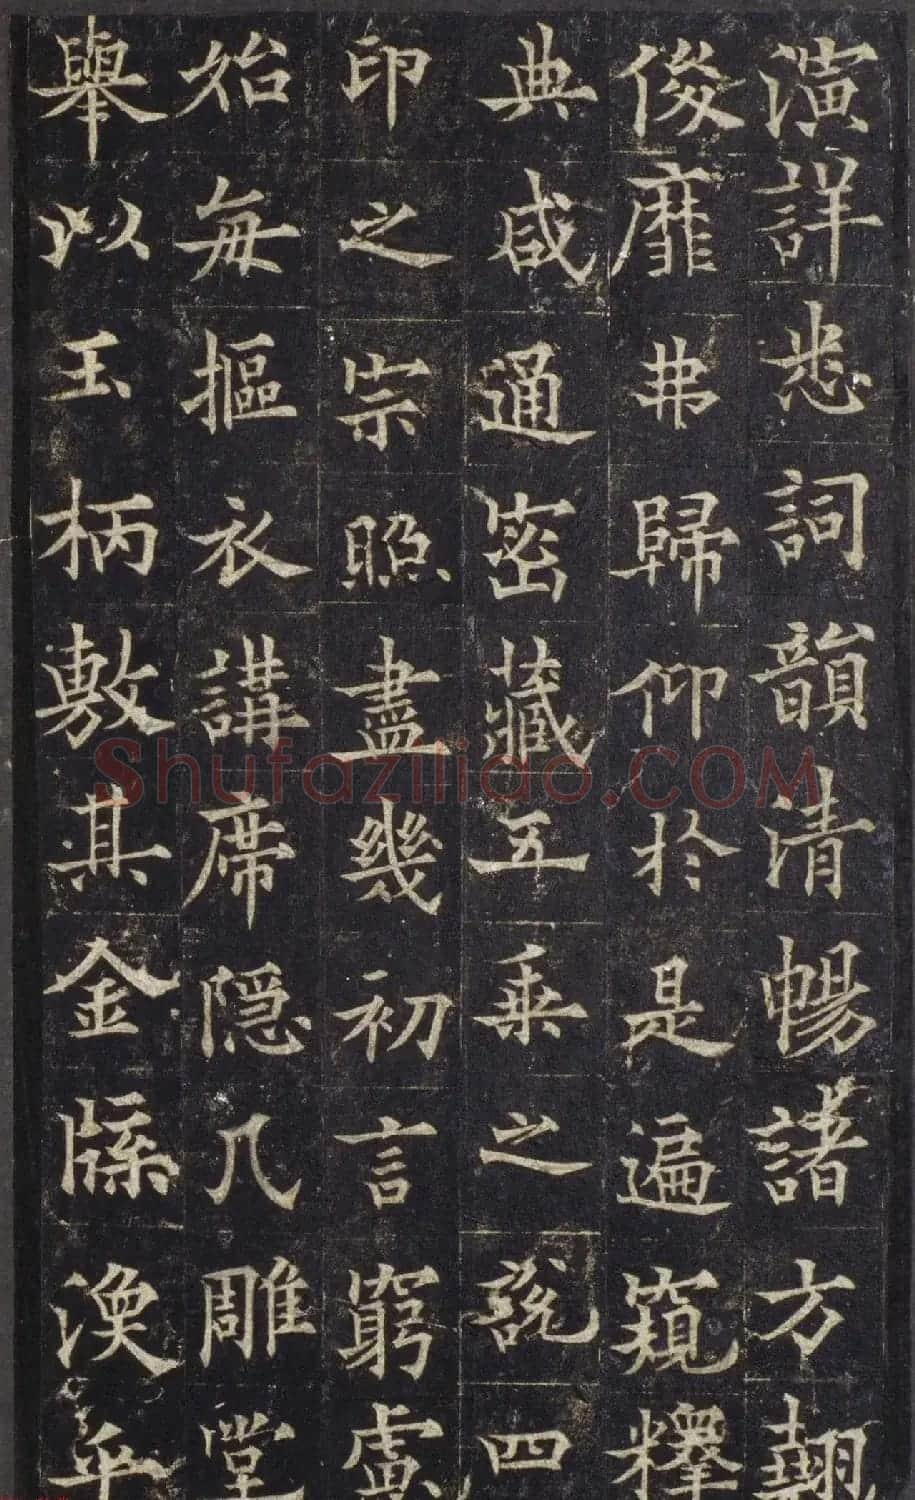 演詳悉詞韻清暢諸方翹
俊靡弗歸仰於是遍窺釋
典咸通密藏五乘之說四
印之宗照盡幾初言窮慮
始每摳衣講席隱几雕堂
舉以玉柄敷其金牒渙乎
Shufaziliao.COM